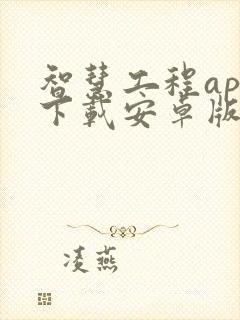 智慧工程ap
下载安卓版
凌燕